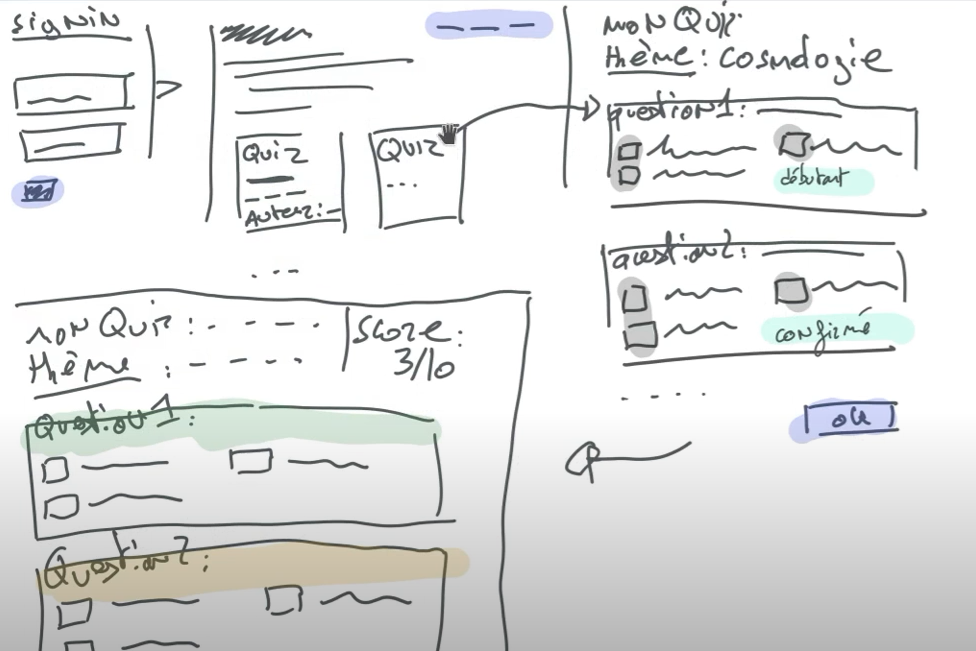 signin
Quiz
Auteur:
Quiz
...
...
mon Quiz
thème: Cosmologie
question 1:
débutant
question 2:
confirmé
....
ok
mon Quiz:
thème:
Score:
3/10
Question 1:
Question 2: